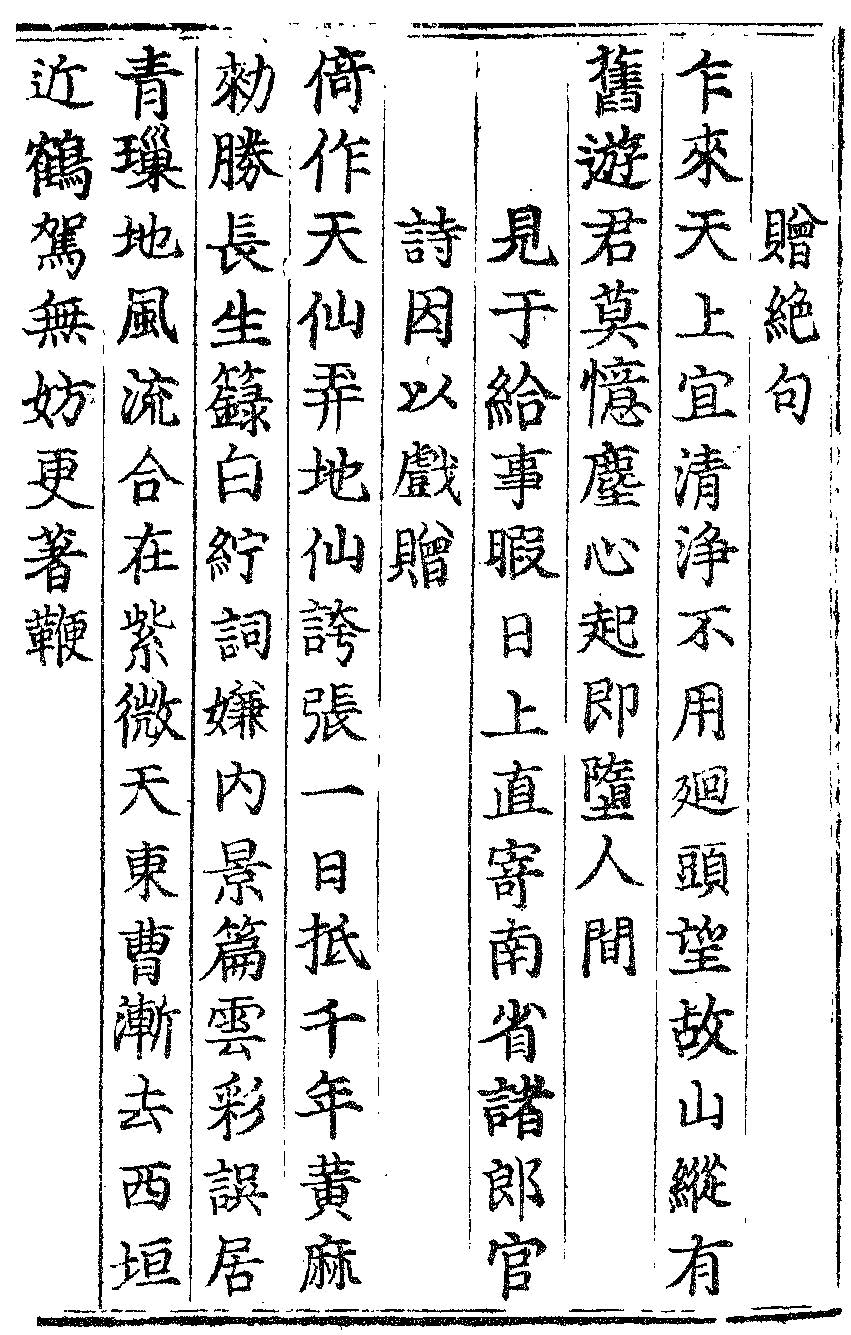 贈絶句
乍來天上宜清浄不用廻頭望故山縱有
舊遊君莫憶塵心起即墮人間
見于給事暇日上直寄南省諸郎官
詩因以戲贈
倚作天仙弄地仙誇張一日抵千年黃麻
勑勝長生籙白紵詞嫌内景篇雲彩誤居
青璅地風流合在紫微天東曹漸去西垣
近鶴駕無妨更著鞭